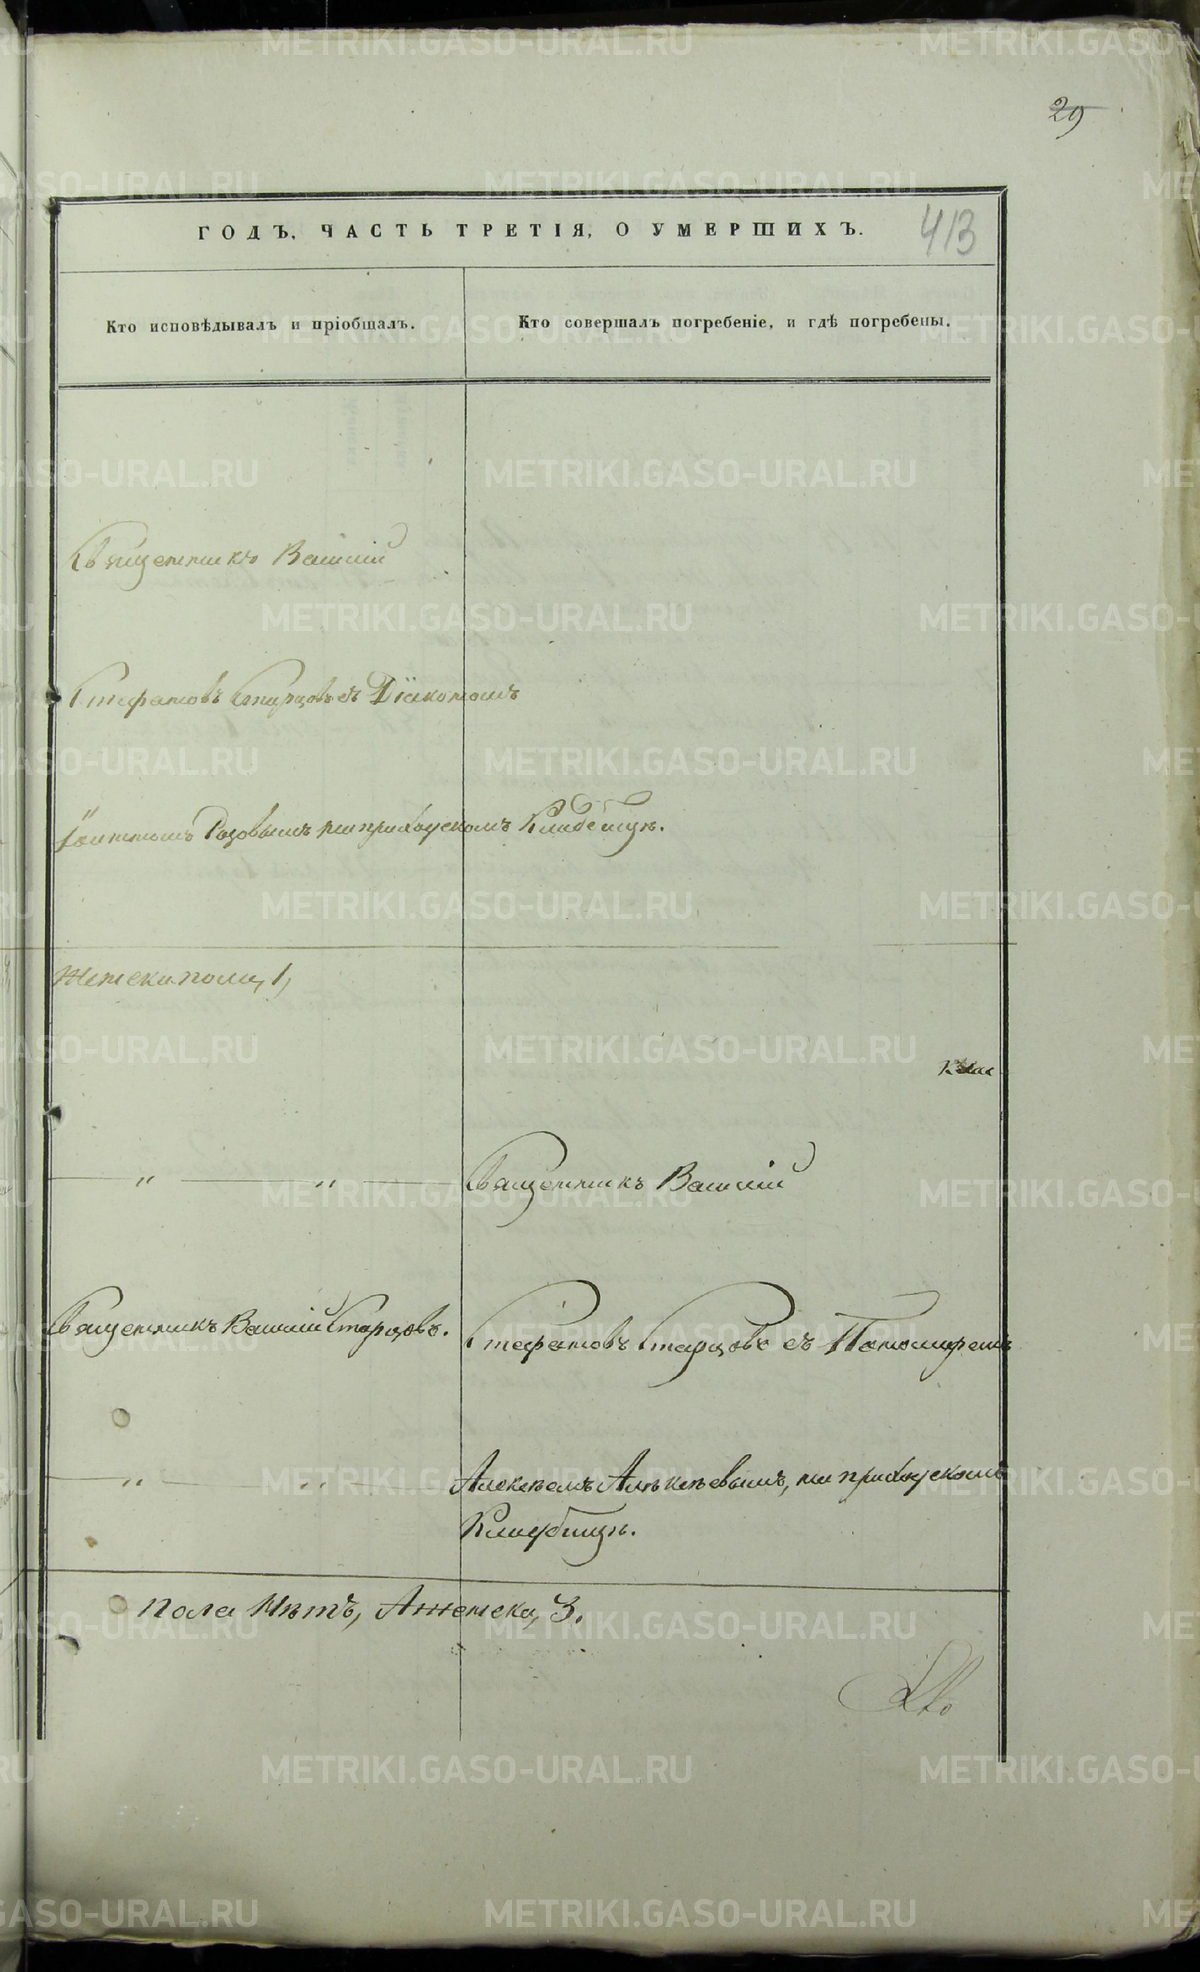 29
413
ГОДЪ, ЧАСТЬ ТРЕТІЯ, О УМЕРШИХЪ.
Кто исповѣдывалъ и пріобщалъ.
Кто совершалъ погребеніе, и гдѣ погребены.
Священникъ Василій
Стефановъ Старцовъ съ Діакономъ
Іоанномъ Розовымъ на приходскомъ Кладбищѣ.
Женска пола, 1,
" " Священникъ Василій
Священникъ Василій Старцовъ.
Стефановъ Старцовъ съ Пономаремъ
" " Алексѣемъ Алексѣевымъ, на приходскомъ
Кладбищѣ.
пола Нѣтъ, Аженска, 3.
METRIKI.GASO-URAL.RU